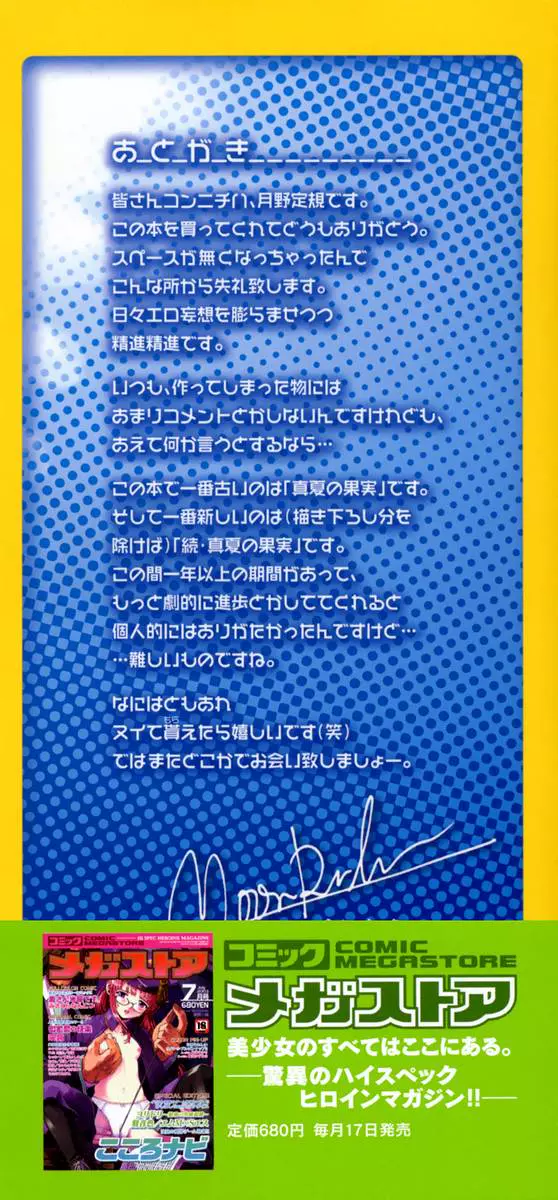 あ_と_が_き_________
皆さんコンニチハ、月野定規です。
この本を買ってくれてどうもありがとう。
スペースが無くなっちゃったんで
こんな所から失礼致します。
日々エロ妄想を膨らませつつ
精進精進です。
いつも、作ってしまった物には
あまりコメントとかしないんですけれども、
あえて何か言うとするなら…
この本で一番古いのは「真夏の果実」です。
そして一番新しいのは(描き下ろし分を
除けば)「続・真夏の果実」です。
この間一年以上の期間があって、
もっと劇的に進歩とかしててくれると
個人的にはありがたかったんですけど…
…難しいものですね。
なにはともあれ
ヌイて貰えたら嬉しいです(笑)
もら
ではまたどこかでお会い致しましょー。
コミック COMIC MEGASTORE
メガストア
美少女のすべてはここにある。
──驚異のハイスペック
ヒロインマガジン!!──
定価680円 毎月17日発売
コミック COMIC MEGASTORE
メガストア
7月号
680YEN
18
こころナビ